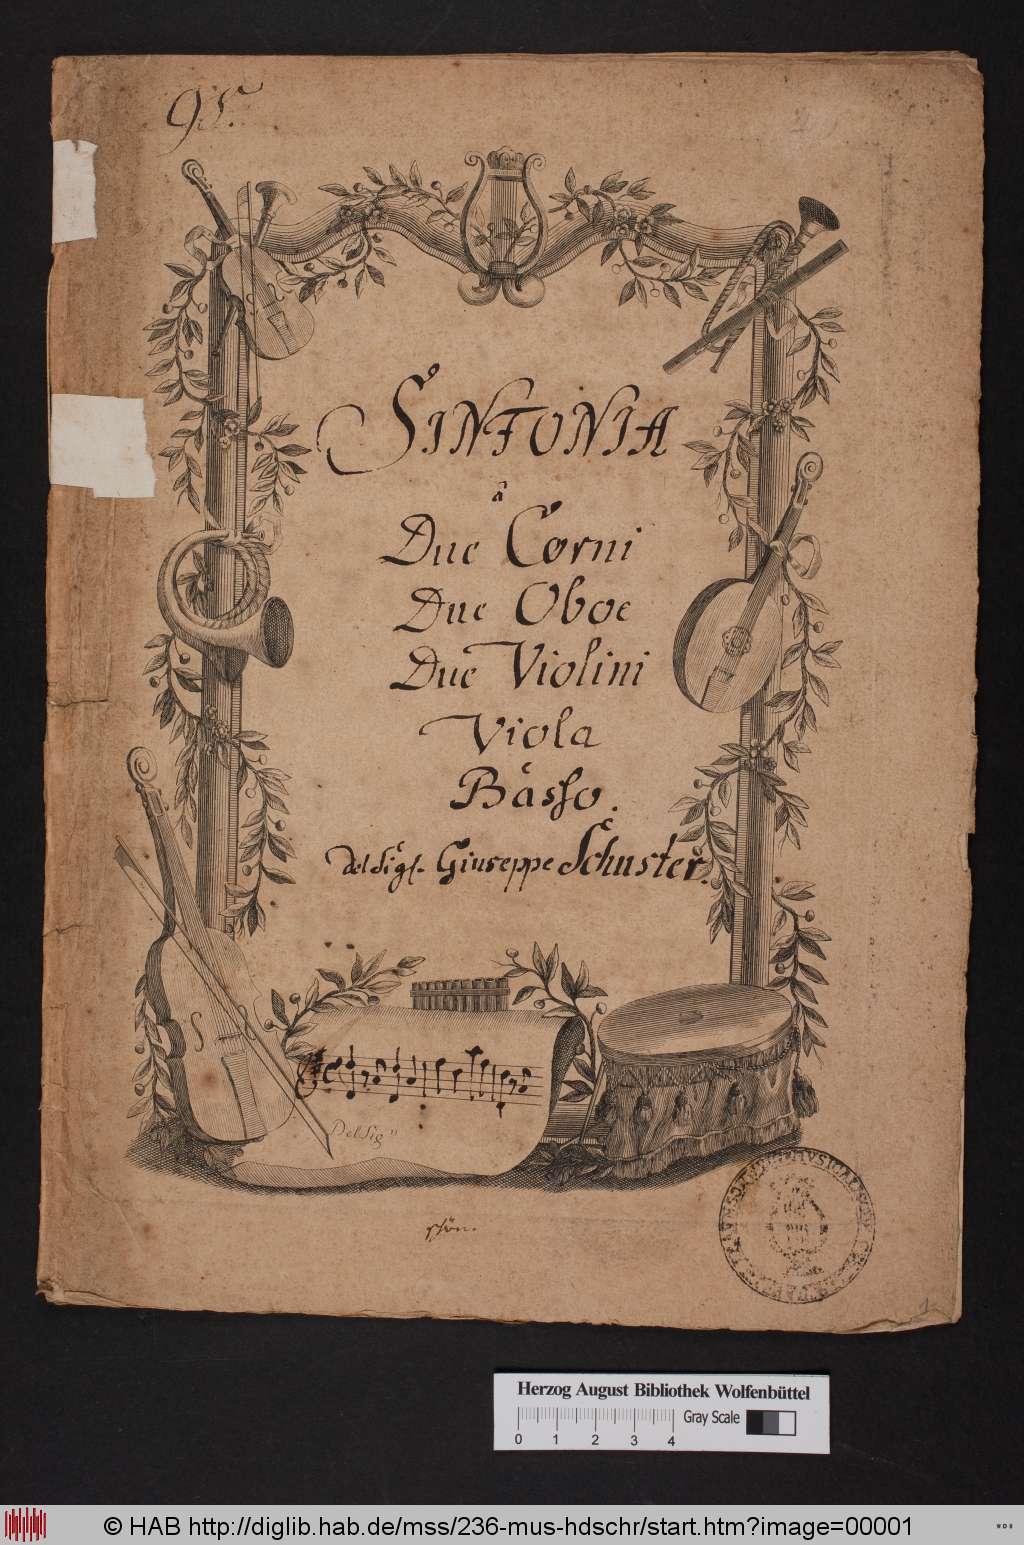 95.
SINFONIA
â
Due Corni
Due Oboe
Due Violini
Viola
Basso.
del Sigr. Giuseppe Schuster.
Del Sigr.
schön.
1
Herzog August Bibliothek Wolfenbüttel
Gray Scale
0 1 2 3 4
© HAB http://diglib.hab.de/mss/236-mus-hdschr/start.htm?image=00001